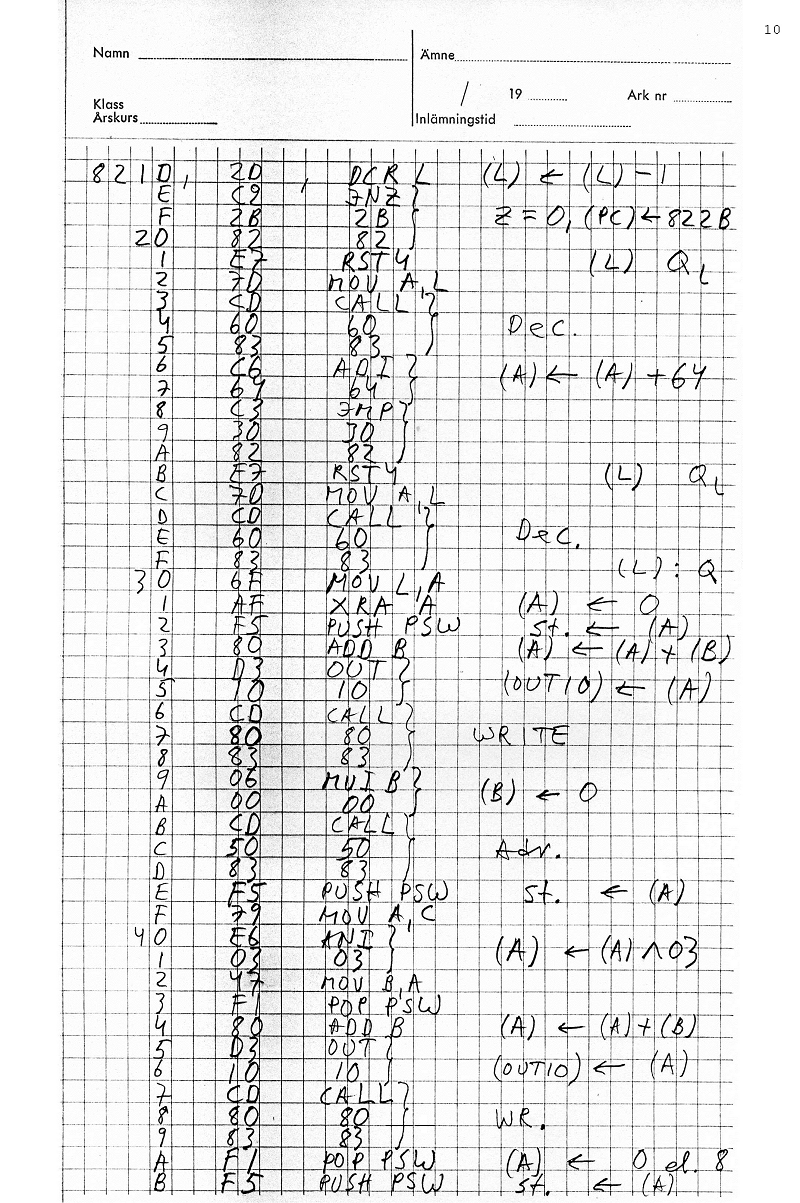 10
Namn Ämne
/ 19 Ark nr
Klass
Årskurs Inlämningstid
821D, 2D , DCR L (L) ← (L) - 1
E C2 JNZ }
F 2B 2B } Z = 0, (PC) ← 822B
20 82 82 }
1 E7 RST4 (L) QL
2 7D MOV A,L
3 CD CALL }
4 60 60 } Dec.
5 83 83 }
6 C6 ADI } (A) ← (A) + 64
7 64 64 }
8 C3 JMP }
9 30 30 }
A 82 82 }
B E7 RST4 (L) QL
C 7D MOV A,L
D CD CALL }
E 60 60 } Dec.
F 83 83 }
30 6F MOV L,A (L) : Q
1 AF XRA A (A) ← 0
2 F5 PUSH PSW st. ← (A)
3 80 ADD B (A) ← (A) + (B)
4 D3 OUT }
5 10 10 } (OUT10) ← (A)
6 CD CALL }
7 80 80 } WRITE
8 83 83 }
9 06 MVI B } (B) ← 0
A 00 00 }
B CD CALL }
C 50 50 } Adr.
D 83 83 }
E F5 PUSH PSW st. ← (A)
F 79 MOV A,C
40 E6 ANI } (A) ← (A) ∧ 03
1 03 03 }
2 47 MOV B,A
3 F1 POP PSW
4 80 ADD B (A) ← (A) + (B)
5 D3 OUT }
6 10 10 } (OUT10) ← (A)
7 CD CALL }
8 80 80 } WR.
9 83 83 }
A F1 POP PSW (A) ← 0 el. 8
B F5 PUSH PSW st. ← (A)